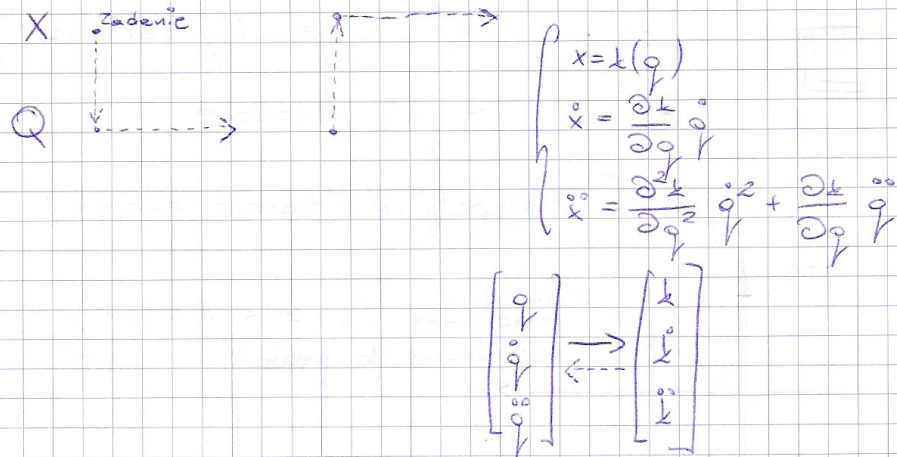 X Zadanie
Q
x = k(q)
ẋ = ∂k/∂q q̇
ẍ = ∂²k/∂q² q̇² + ∂k/∂q q̈
[q q̇ q̈] → ⇠ [k k̇ k̈]